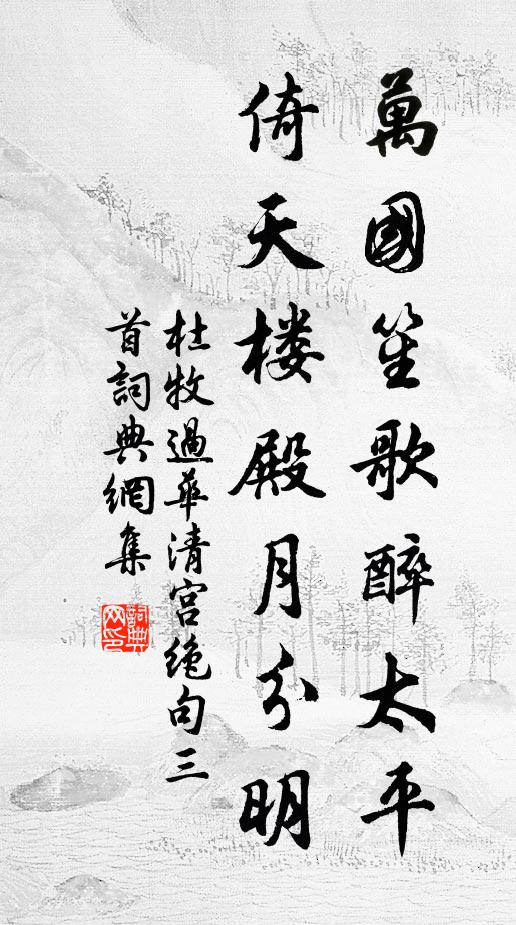 萬國笙歌醉太平
倚天楼殿月分明
杜牧過華清宫绝句三
首詞典網集
詞典網印